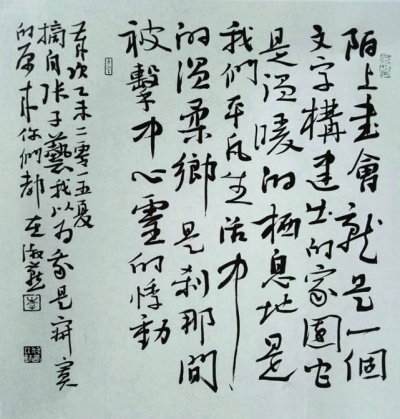 陌上書會就是一個
文字構建出的家園它
是溫暖的栖息地是
我們平凡生活中
的溫柔鄉是刹那間
被擊中心靈的悸動
歲次乙未二零一五夏
摘自张子藝我以为我是寂寞
的原来你們都在淑燕